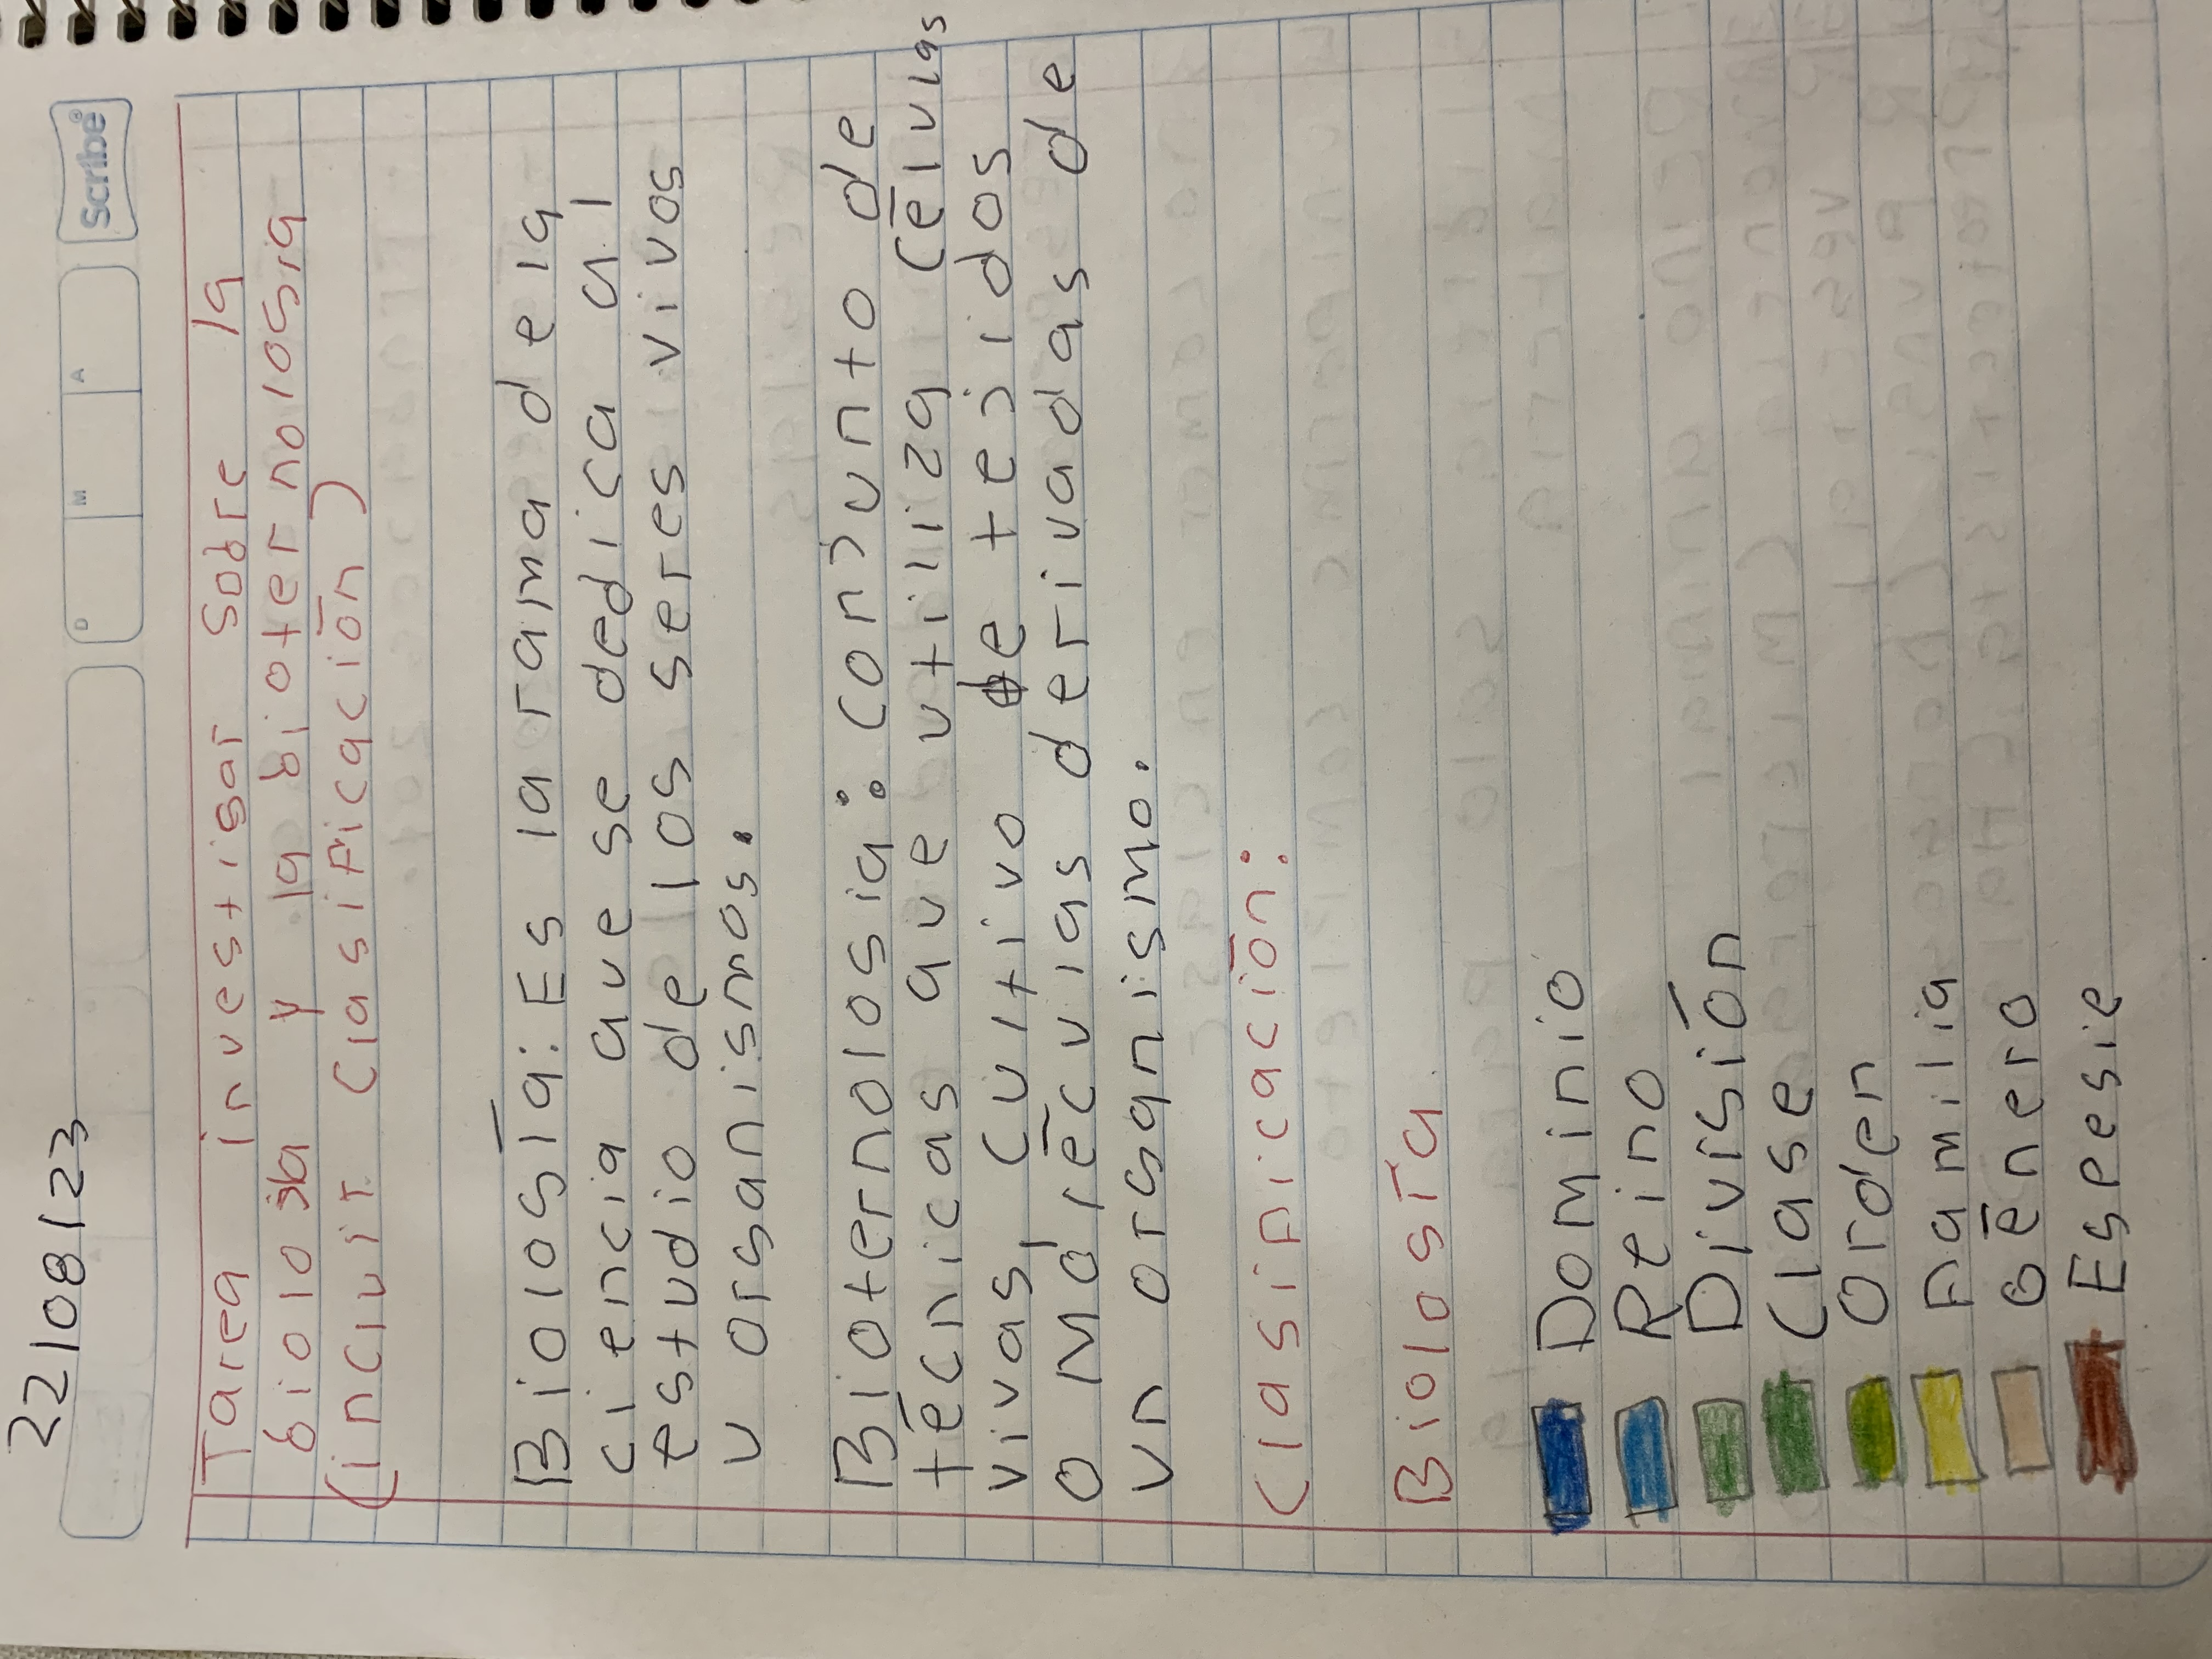 22/08/23
D M A
Scribe®
Tarea investigar sobre la
biología y la bioternología
(incluir clasificación)
Biología: Es la rama de la
ciencia que se dedica al
estudio de los seres vivos
u organismos.
Bioternologia: conjunto de
técnicas que utiliza células
vivas, cultivo de tejidos
o moléculas derivadas de
un organismo.
Clasificación:
Biología
Dominio
Reino
División
Clase
Orden
Familia
Género
Espesie